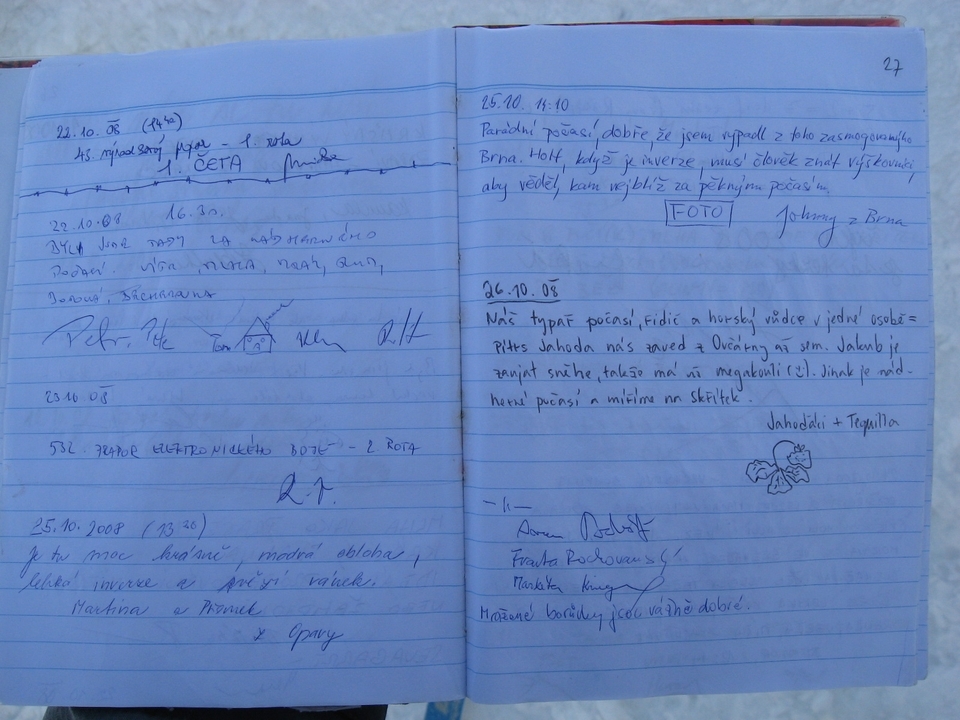 22.10. 08 (14 42)
43. výsadkový prapor - 1. rota
1. ČETA
22.10.08 16.30.
BYLA JSME TADY ZA NÁDHERNÉHO
POČASÍ.
23.10 08
532. PRAPOR ELEKTRONICKÉHO BOJE - 2 ROTA
25.10.2008 (13 30)
Je tu moc krásně, modrá obloha,
lehká inverze a svěží vánek.
Martina a Přemek
z Opavy
27
25.10. 14:10
Parádní počasí, dobře, že jsem vypadl z toho zasmogovaného
Brna. Holt, když je inverze, musí člověk znát výškovnici,
aby věděl, kam nejblíž za pěkným počasím.
FOTO Johnny z Brna
26.10.08
Náš typař počasí, řidič a horský vůdce v jedné osobě =
Jahoda nás zaved z Ovčárny až sem. Jakub je
zaujat sněhem, takže má už megakouli (:). Jinak je nád-
herné počasí a míříme na Skřítek.
Jahodáci + Tequilla
-11-
Franta
Markéta
Mražené borůvky jsou vážně dobré.